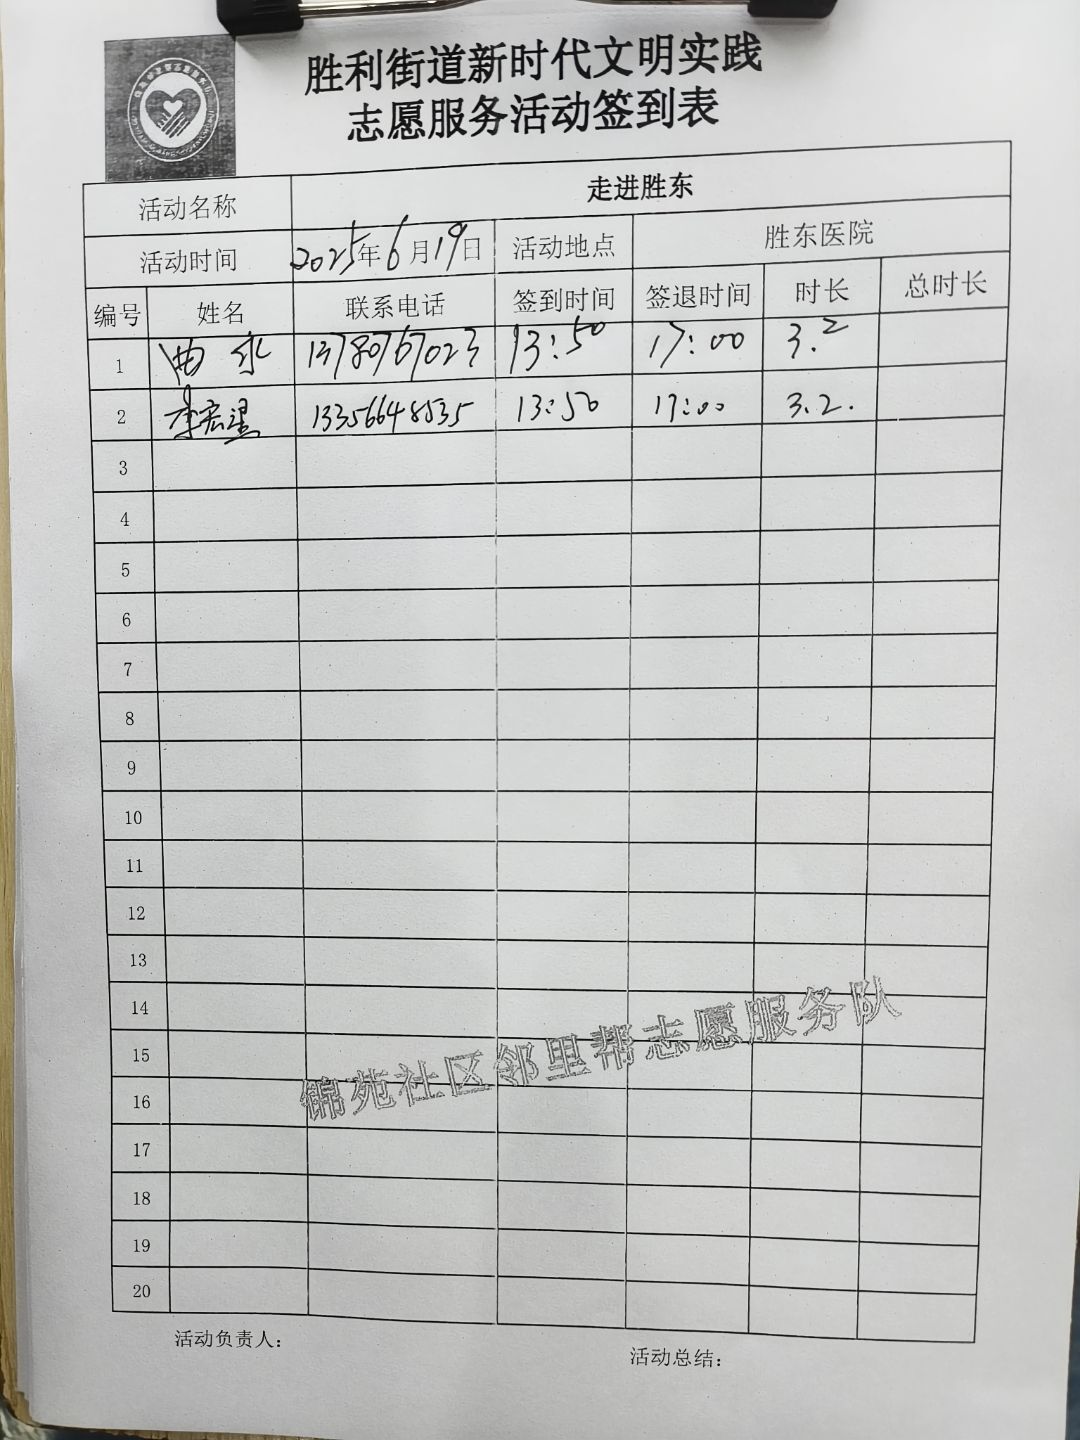 胜利街道新时代文明实践
志愿服务活动签到表
活动名称 走进胜东
活动时间 2025年6月19日 活动地点 胜东医院
编号 姓名 联系电话 签到时间 签退时间 时长 总时长
1 曲 13780767023 13:50 17:00 3.2
2 李宏星 13356648535 13:50 17:00 3.2.
3
4
5
6
7
8
9
10
11
12
13
14
15
16
17
18
19
20
锦苑社区邻里帮志愿服务队
活动负责人:
活动总结: